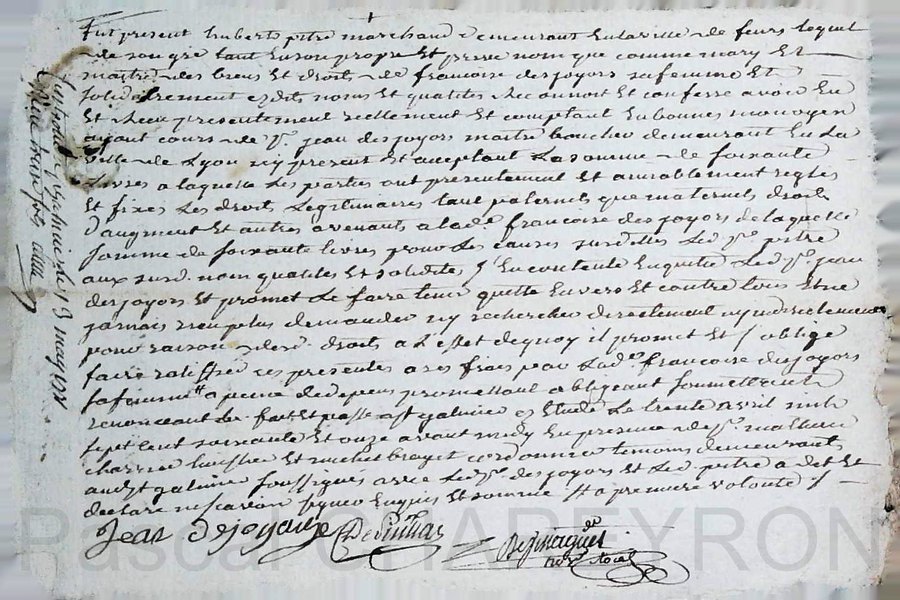 Fut present hubert pitre marchand demeurant En la ville de feurs lequel
de son gre tant En son propre Et privé nom que comme mary Et
maitre des biens Et droits de francoise desjoyors sa femme Et
solidairement esdits noms Et qualites Reconnoit Et confesse avoir Eu
Et Receu presentement reellement Et comptant En bonnes monoyes
ayant cours de Sr. jean desjoyors maitre boucher demeurant En la
ville de Lyon icy present Et acceptant La somme de soixante
Livres a laquelle Les parties ont presentement Et amiablement regles
Et fixes Les droits Legitimaires tant paternels que maternels droits
d'augment Et autres avenants a lade. francoise des joyors de laquelle
somme de soixante livres pour Les causes susdittes Led. Sr. pitre
aux susd. nom qualites Et solidite s'En contente En quitte Led. Sr. jean
des joyors Et promet Le faire tenir quitte Envers Et contre tous Et ne
jamais rien plus demander ny rechercher directement ny indirectement
pour raison desd. droits a L'effet de quoy il promet Et s'oblige
faire ratiffier ces presentes a ses frais par Lade. francoise des joyors
sa femme a peine de depens promettant obligeant soumettant
renonceant de. fait Et passé a St galmier Es Etude Le trente avril mil
sept cent soixante Et onze avant midy En presence de Sr. mathieu
charrier huissier Et michel brayet cordonnier temoins demeurants
aud St galmier soussignes avec Led. Sr. des joyors Et Led. pitre a dit Et
declaré ne scavoir signer Enquis Et sommé
Jean Dejoyor
Pascal CHAPEYRON